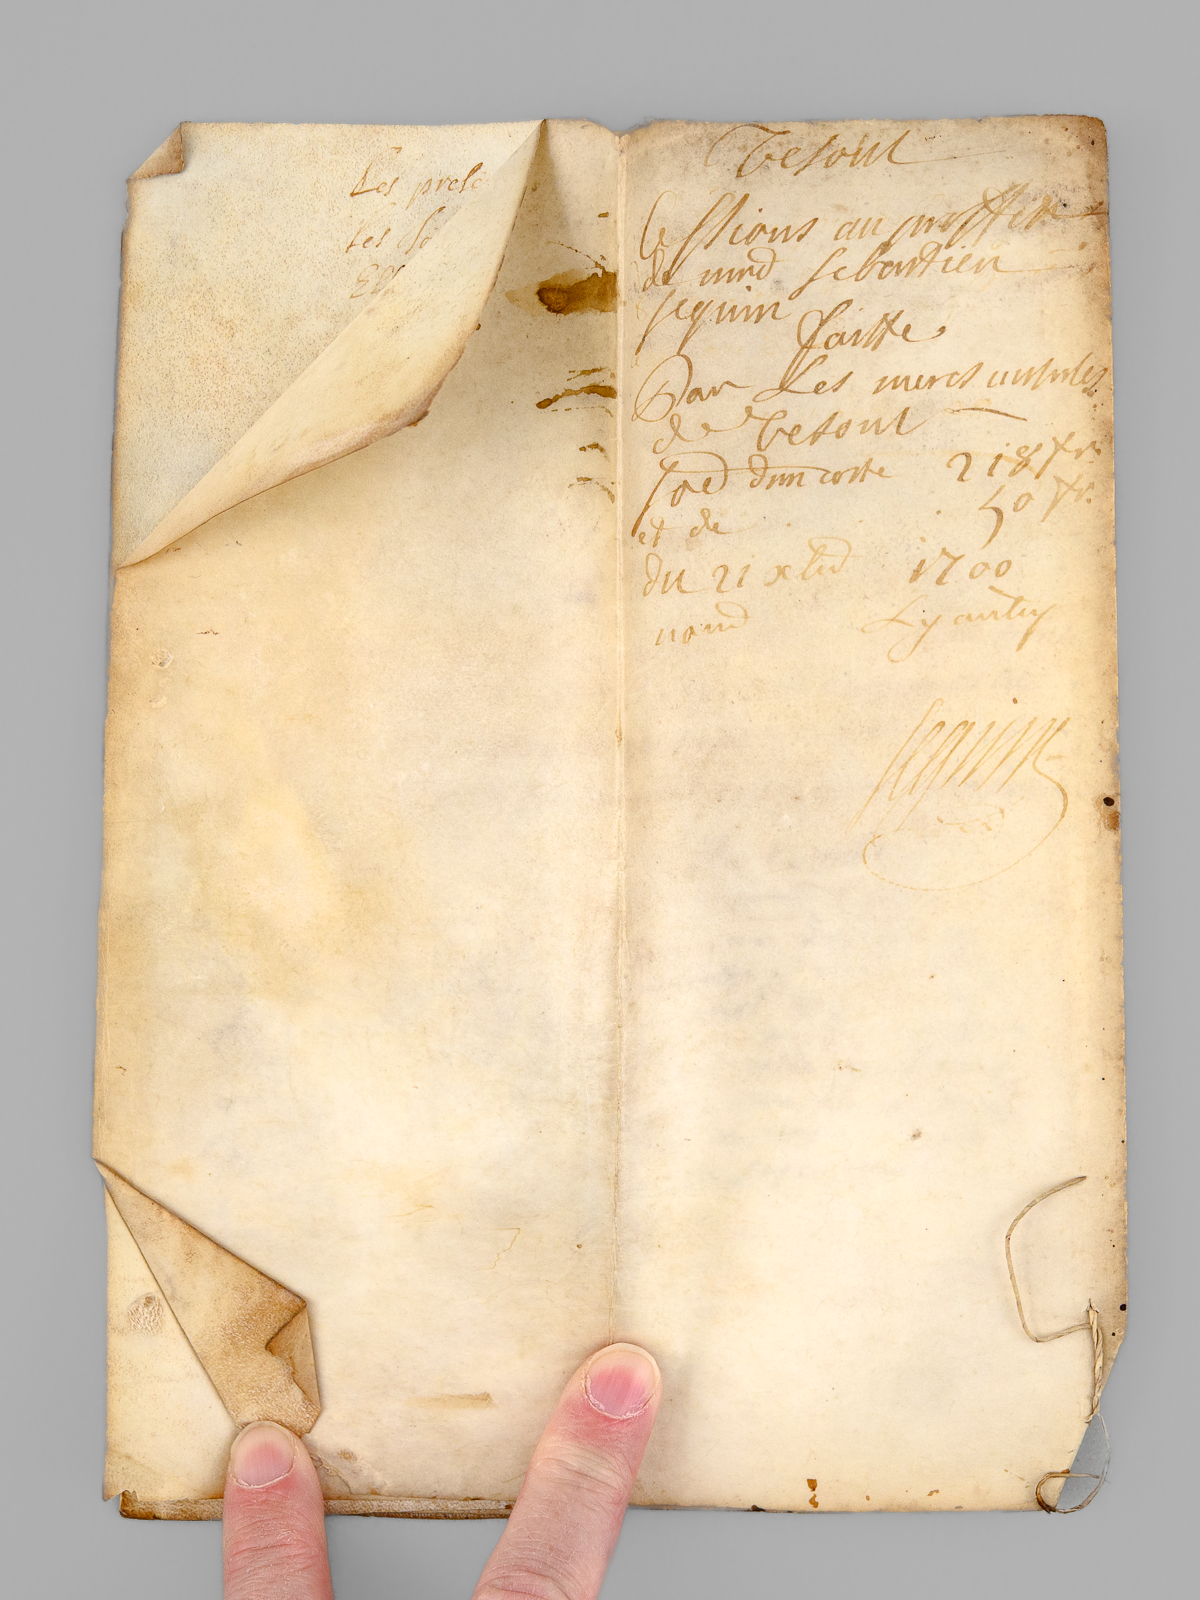 Les prese
les
Vesoul
Cessions au proffit
de nred Sebastien
seguin
faitte
Par Les mercs
de Vesoul
soed dun coste 218 fr.
et de 50 fr.
du 21 xbre 1700
Seguin